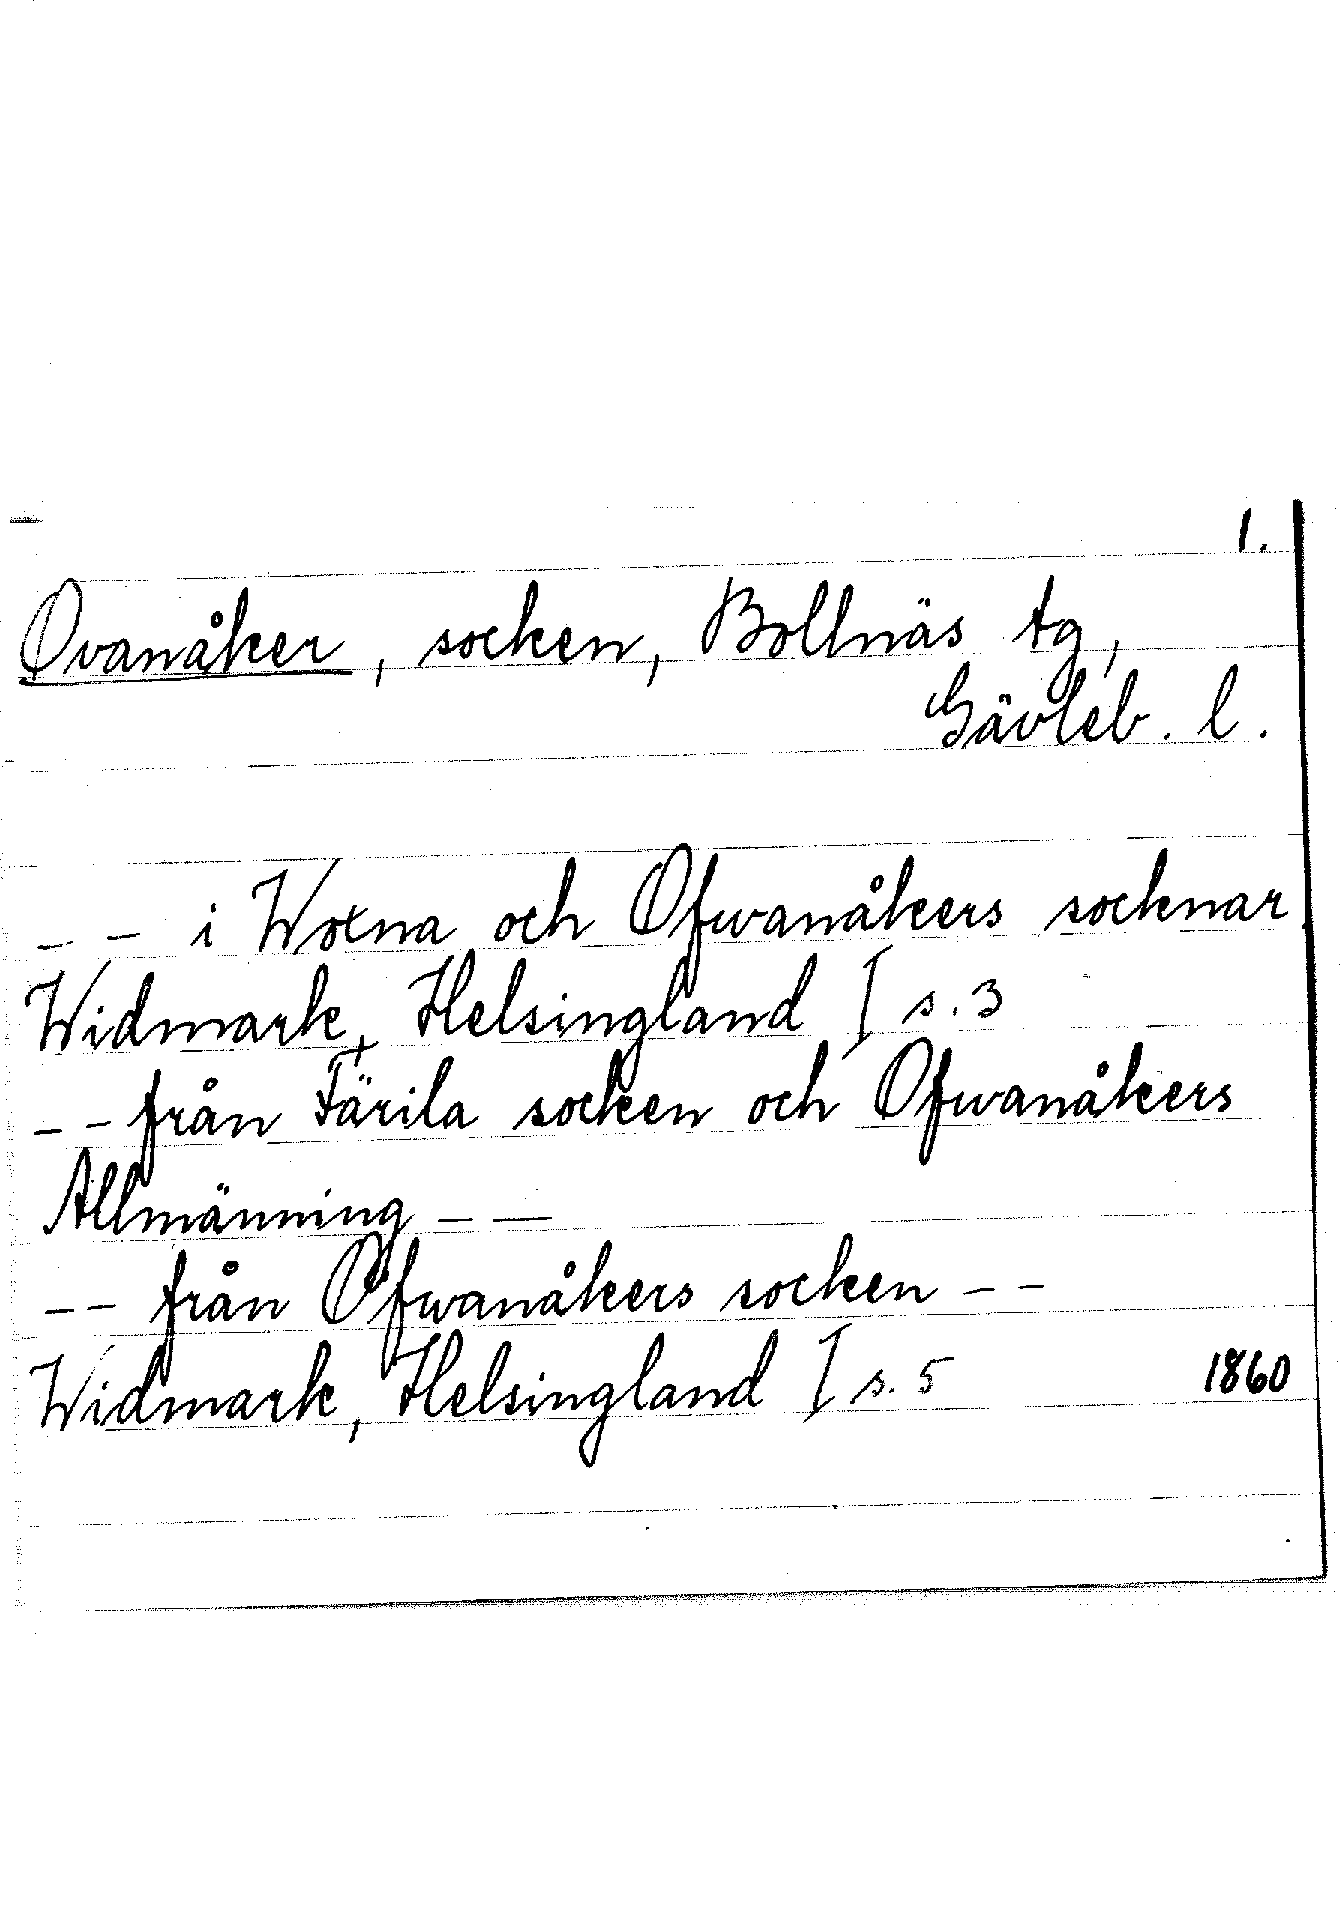 1.
Ovanåker, socken, Bollnäs tg,
Gävleb. l.
-- i Woxna och Ofwanåkers socknar
Widmark, Helsingland I s. 3
-- från Färila socken och Ofwanåkers
Allmänning --
-- från Ofwanåkers socken --
Widmark, Helsingland I s. 5 1860